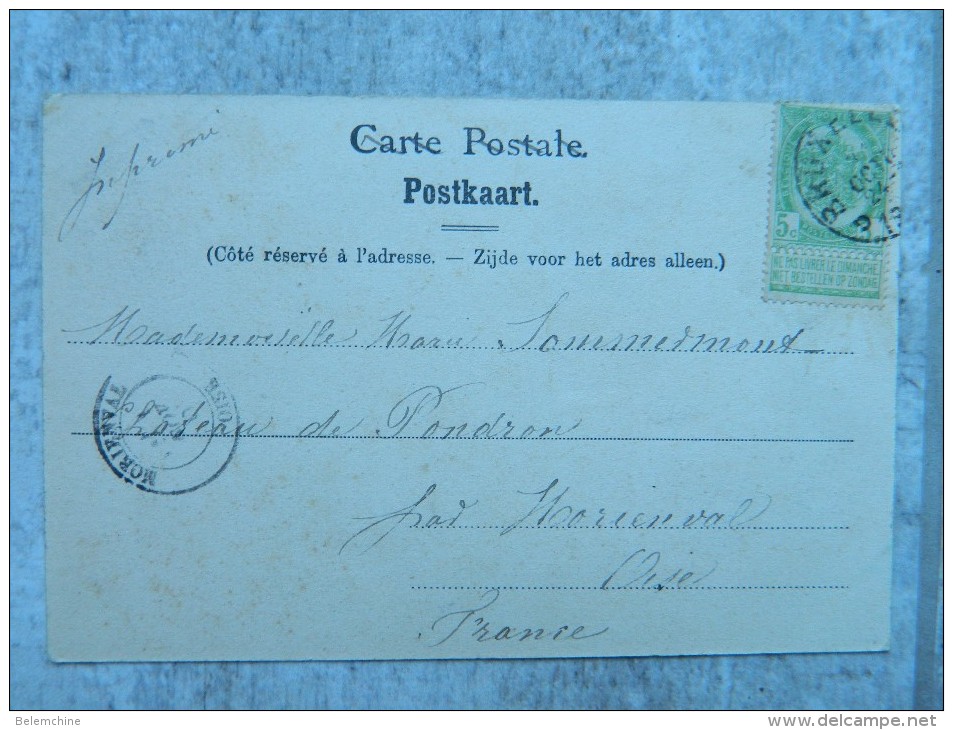 Imprimé
Carte Postale.
Postkaart.
(Côté réservé à l'adresse. — Zijde voor het adres alleen.)
BRUXELLES
5c
NE PAS LIVRER LE DIMANCHE
NIET BESTELLEN OP ZONDAG
Mademoiselle Marie Sommermont
Château de Pondron
par Morienval
Oise
France
MORIENVAL OISE
Belemchine
www.delcampe.net